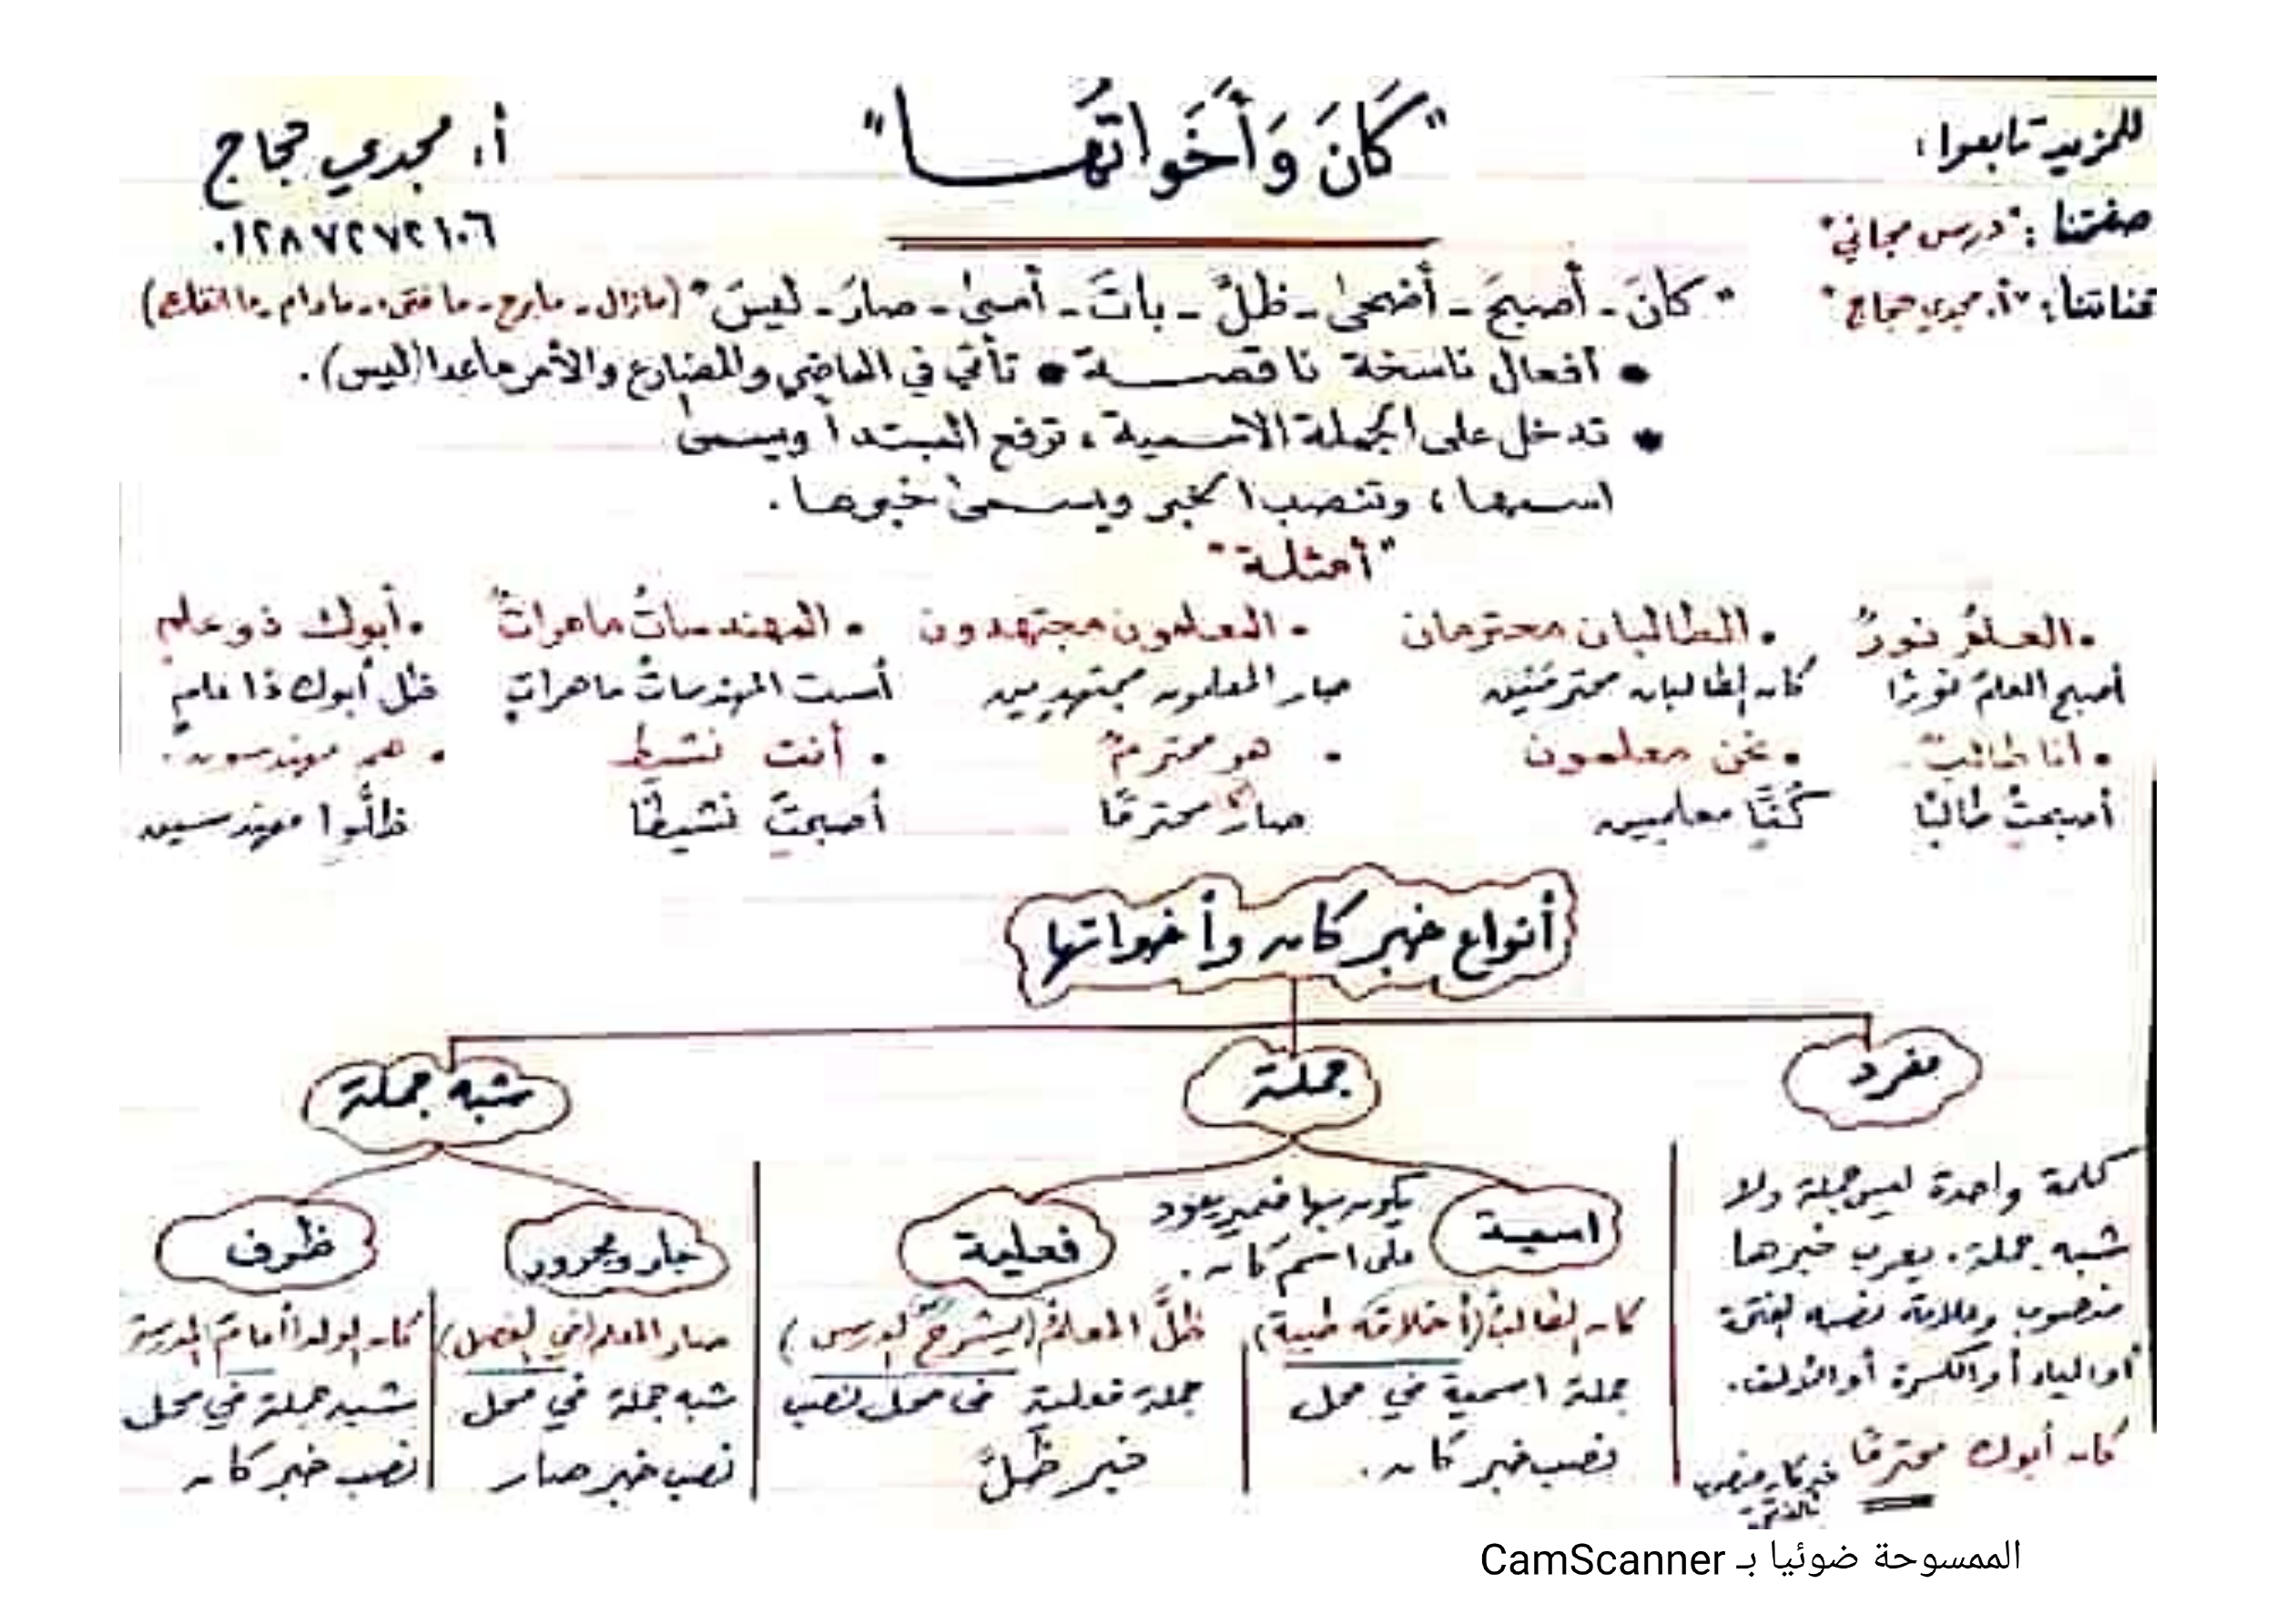 للمزيد تابعوا:
"كَانَ وَأَخَواتُها"
أ. مجدي حجاج
صفحتنا: "درس مجاني"
٠١٢٨٧٢٧٢١٠٦
قناتنا: "أ. مجدي حجاج"
"كانَ - أصبحَ - أضحى - ظلَّ - باتَ - أمسى - صارَ - ليسَ" (مازال - مابرح - ما فتىء - مادام - ما انفك)
• أفعال ناسخة ناقصة • تأتي في الماضي والمضارع والأمر ماعدا (ليس).
• تدخل على الجملة الاسمية، ترفع المبتدأ ويسمى
اسمها، وتنصب الخبر ويسمى خبرها.
"أمثلة"
• العلمُ نورٌ • الطالبان محترمان • المعلمون مجتهدون • المهندساتُ ماهراتٌ • أبوك ذو علمٍ
أصبح العلمُ نورًا كان الطالبان محترمَيْن صار المعلمون مجتهدين أمست المهندساتُ ماهراتٍ ظل أبوك ذا علمٍ
• أنا طالبٌ • نحن معلمون • هو محترمٌ • أنت نشيط • هم مهندسون.
أصبحتُ طالبًا كُنَّا معلمين صارَ محترمًا أصبحتَ نشيطًا ظلُّوا مهندسين
أنواع خبر كان وأخواتها
مفرد
جملة
شبه جملة
كلمة واحدة ليس جملة ولا
شبه جملة. يعرب خبرها
منصوب وعلامة نصبه الفتحة
أو الياء أو الكسرة أو الألف.
كان أبوك محترمًا خبر كان منصوب
بالفتحة
اسمية
يكون بها ضمير يعود
على اسم كان.
فعلية
كان الطالبُ (أخلاقه طيبة)
جملة اسمية في محل
نصب خبر كان.
ظلَّ المعلمُ (يشرحُ الدرس)
جملة فعلية في محل نصب
خبر ظلَّ
جار ومجرور
ظرف
صار المعلم (في الفصل)
شبه جملة في محل
نصب خبر صار
كان الولد أمامَ المدرسة
شبه جملة في محل
نصب خبر كان
الممسوحة ضوئيا بـ CamScanner